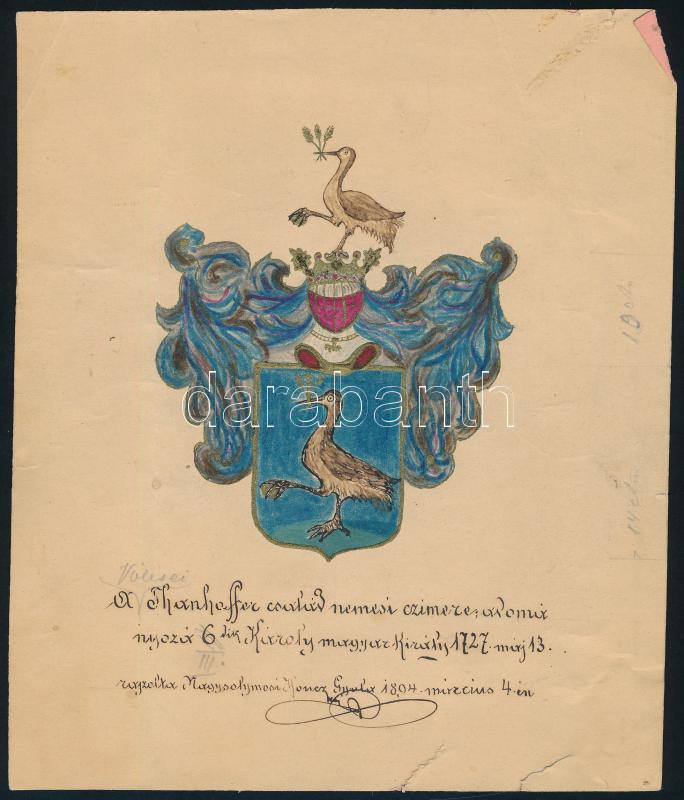 darabanth
19 ch
14 ctm
Völcsei
A Thanhoffer család nemesi czimere, adomá
nyozá 6 dik Károly magyar király 1727. máj 13.
III.
rajzolta Nagysolymosi Koncz Gyula 1894. márczius 4-én